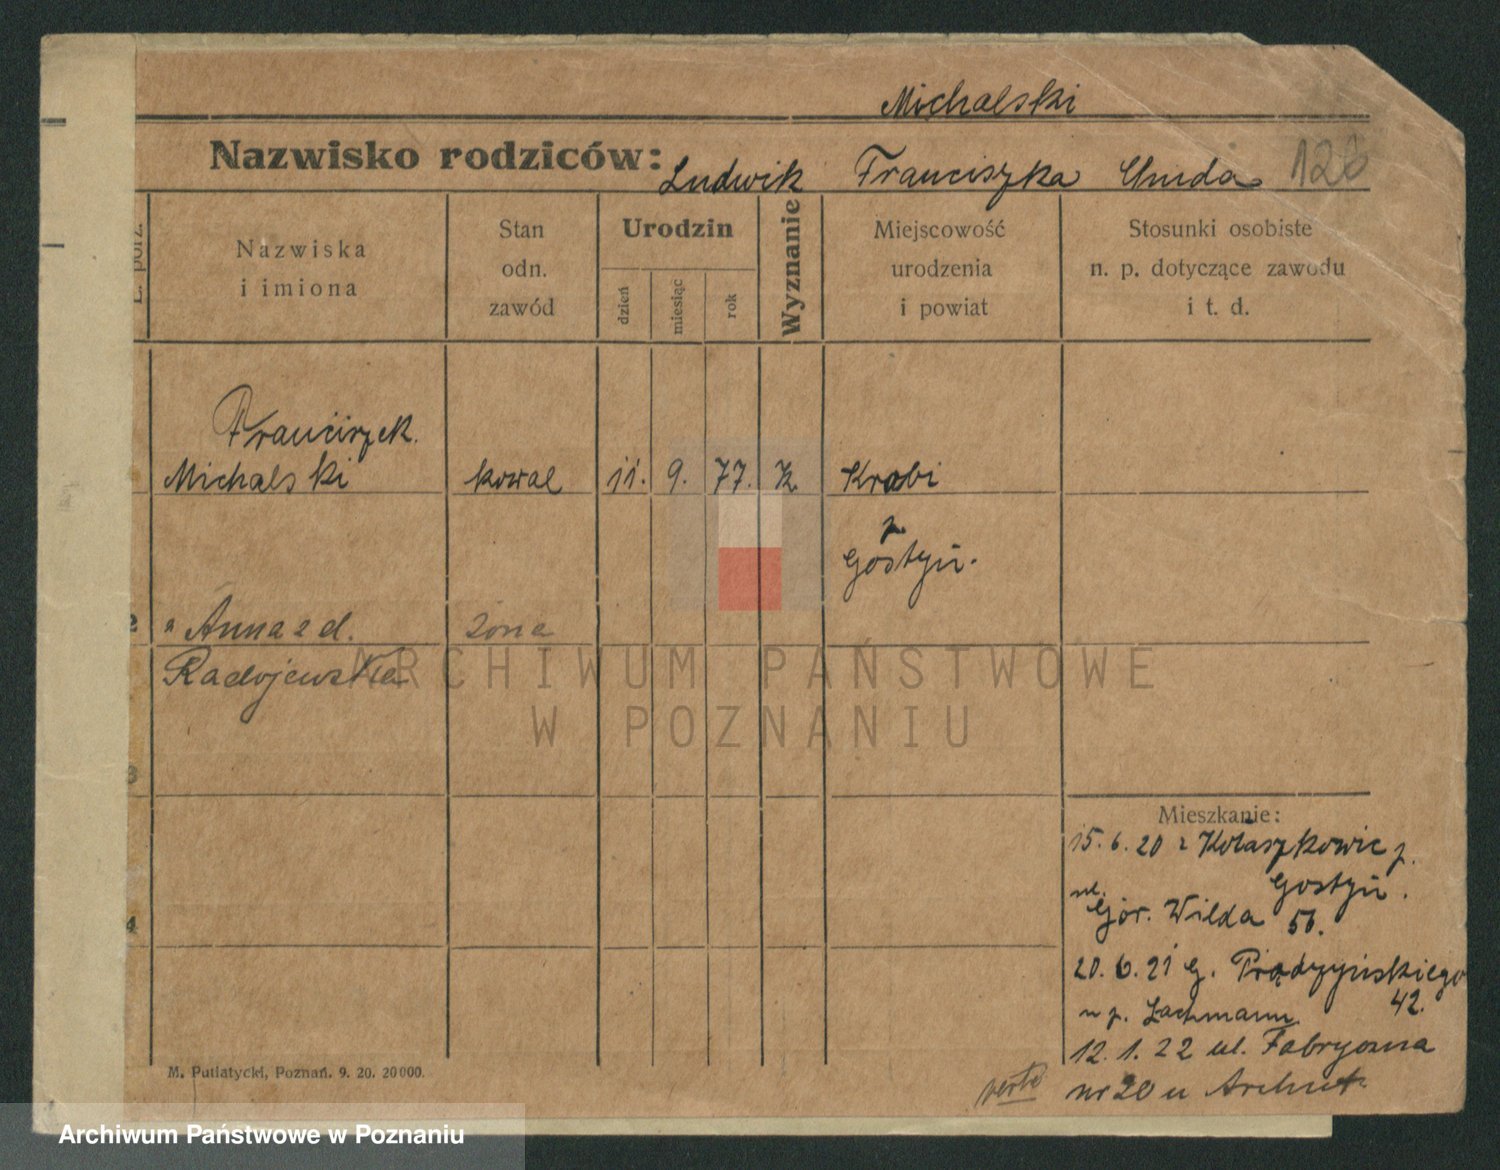 Michalski
Nazwisko rodziców: Ludwik Franciszka
128
L. porz.
Nazwiska
i imiona
Stan
odn.
zawód
Urodzin
dzień
miesiąc
rok
Wyznanie
Miejscowość
urodzenia
i powiat
Stosunki osobiste
n. p. dotyczące zawodu
i t. d.
Franciszek.
Michalski kowal 11. 9. 77. K Krobi
p.
Gostyń.
2 " Anna z d. żona
Radojewska
3
4
Mieszkanie:
15.6.20 z Kołaszkowic p.
Gostyń.
ul.
Gór. Wilda 56.
20.6.21 G. Prądzyńskiego
42.
u p. Lachmann
12.1.22 ul. Fabryczna
nr 20 u
verte
M. Putiatycki, Poznań. 9. 20. 20000.
ARCHIWUM PAŃSTWOWE
W POZNANIU
Archiwum Państwowe w Poznaniu